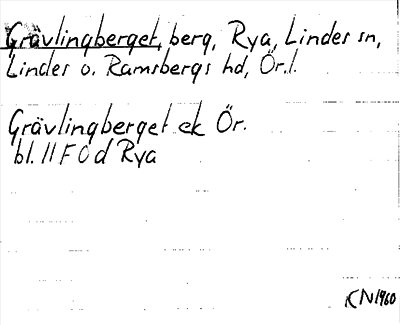 Grävlingberget, berg, Rya, Lindes sn,
Lindes o. Ramsbergs hd, Ör.l.
Grävlingberget ek Ör.
bl. 11 F 0 d Rya
KN 1960